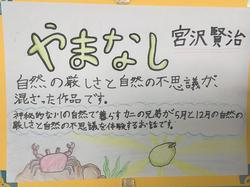 やまなし
宮沢賢治
自然の厳しさと自然の不思議が、
混ざった作品です。
神秘的な川の自然で暮らすカニの兄弟が5月と12月の自然の
厳しさと自然の不思議を体験するお話です。